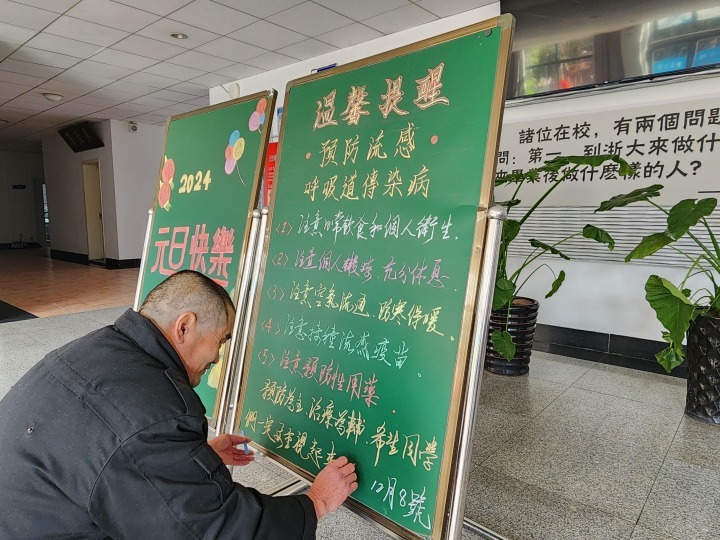 2024
元旦快樂
溫馨提醒
·預防流感·
呼吸道傳染病
<1>注意日常飲食和個人衛生.
<2>注意個人鍛煉 充分休息
<3>注意空氣流通、防寒保暖.
<4>注意接種流感疫苗.
<5>注意預防性用藥.
預防為主 治療為輔.希望同學
們一定要重視起來
12月8號
諸位在校，有兩個問題
問：第一，到浙大來做什
畢業後做什麽樣的人？